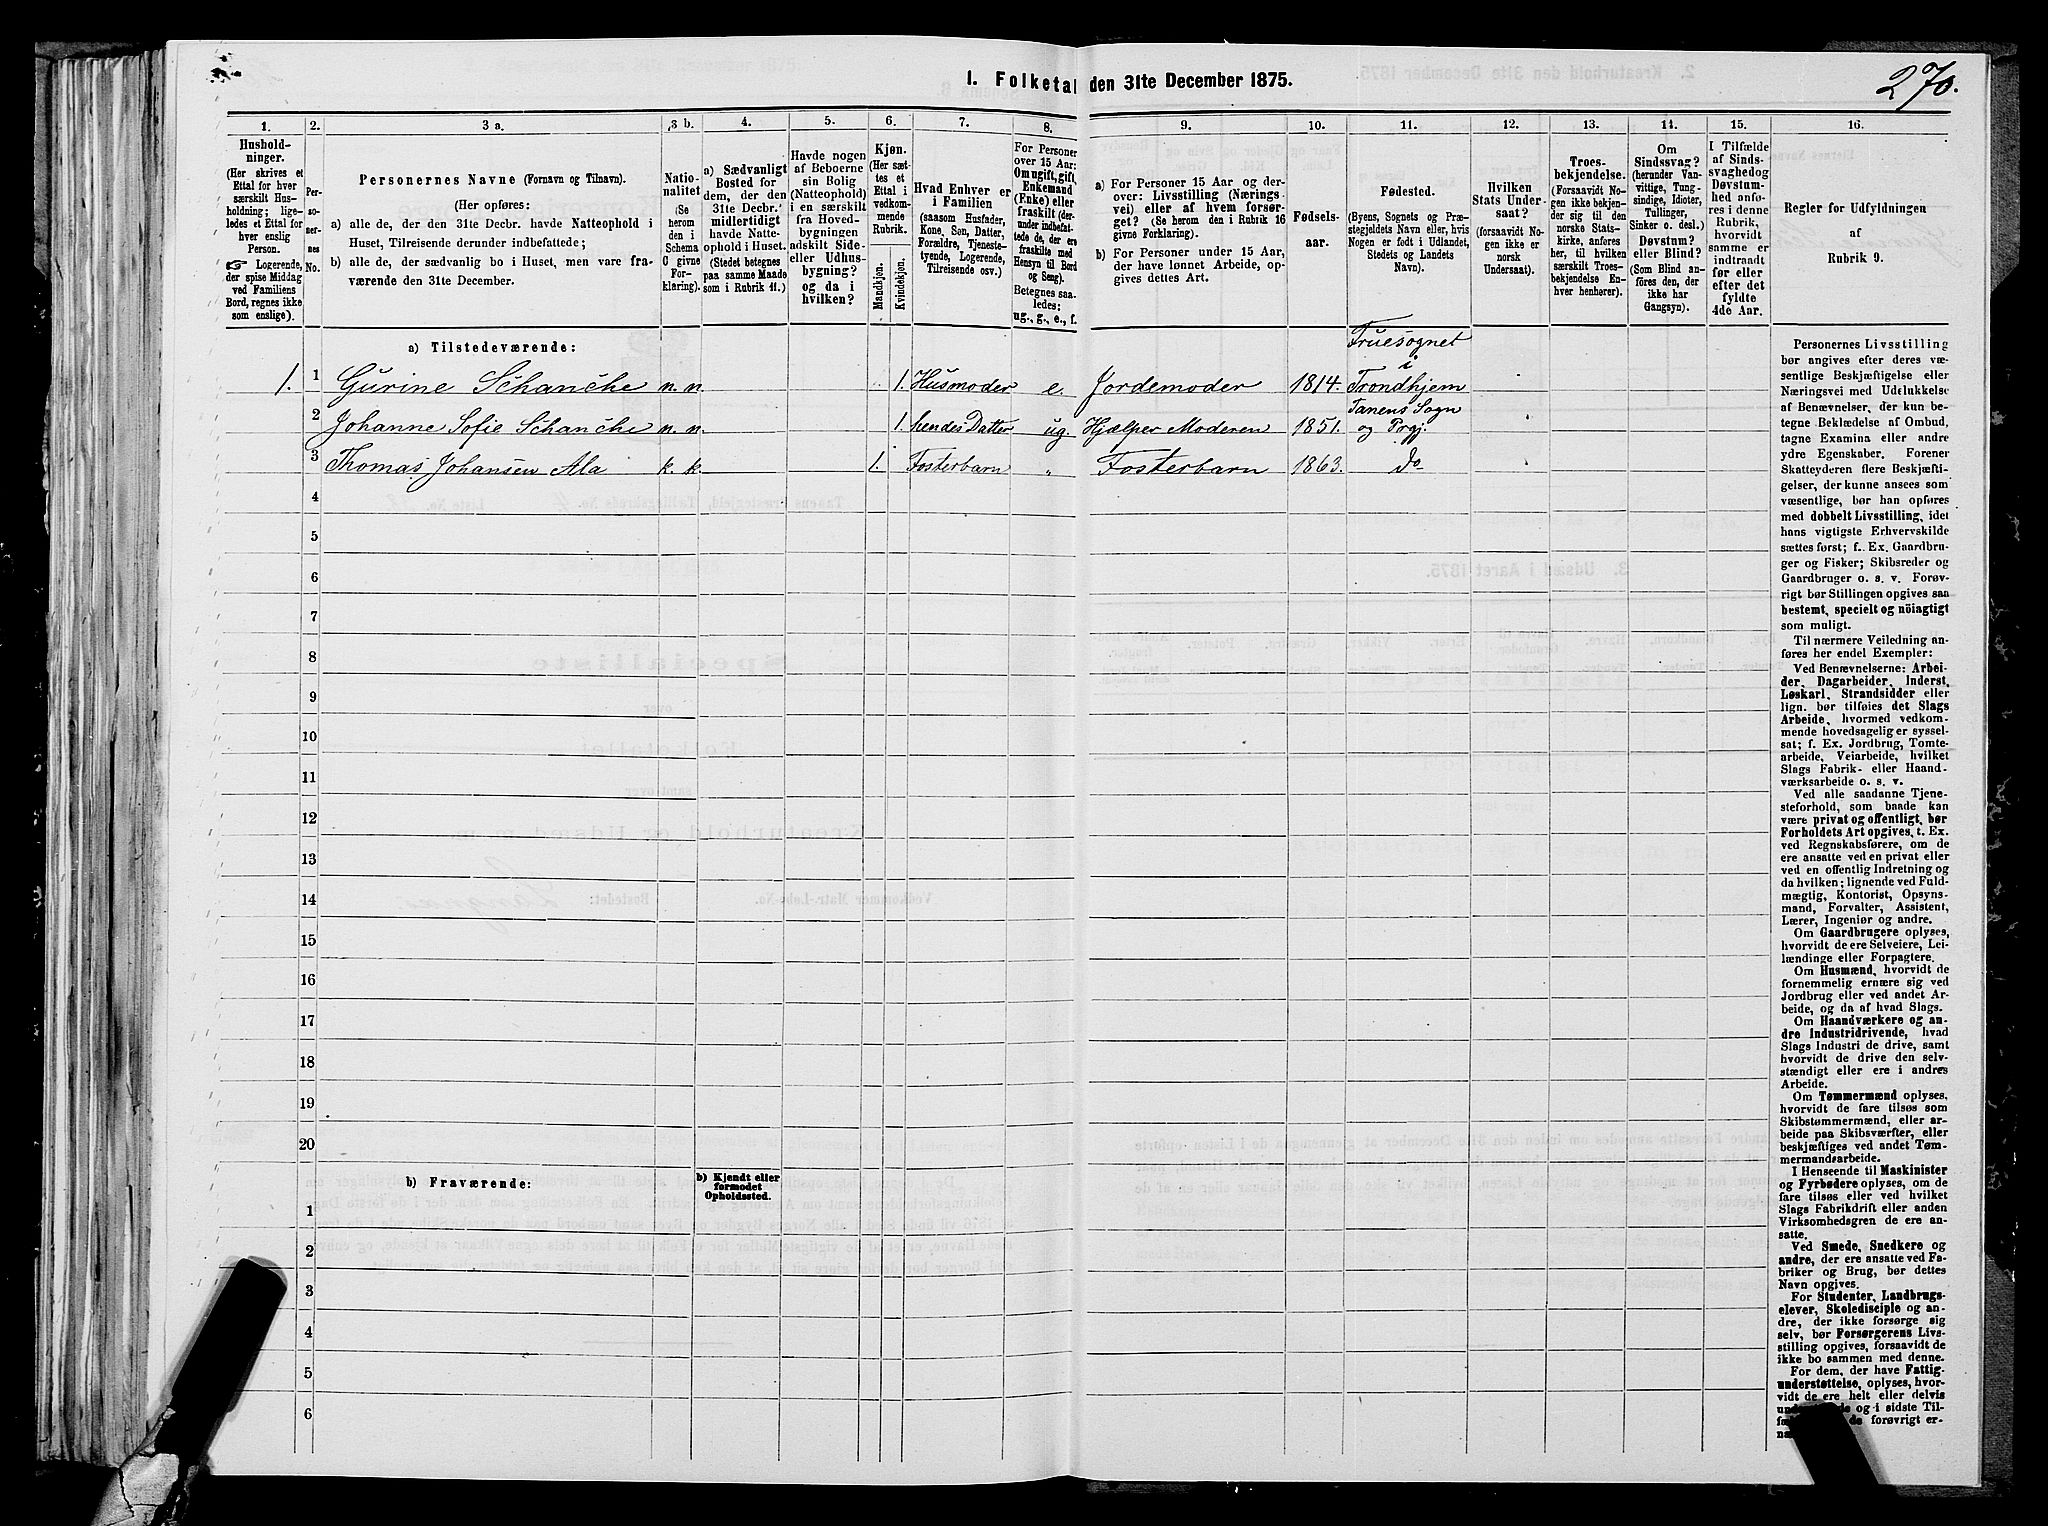 270.
1. Folketal den 31te December 1875.
1. 2. 3 a. 3 b. 4. 5. 6. 7. 8. 9. 10. 11. 12. 13. 14. 15. 16.
Hushold-
ninger.
(Her skrives et
Ettal for hver
særskilt Hus-
holdning; lige-
ledes et Ettal for
hver enslig
Person.
☞ Logerende,
der spise Middag
ved Familiens
Bord, regnes ikke
som enslige).
Per-
so-
ner-
nes
No.
Personernes Navne (Fornavn og Tilnavn).
(Her opføres:
a) alle de, der den 31te Decbr. havde Natteophold i
Huset, Tilreisende derunder indbefattede;
b) alle de, der sædvanlig bo i Huset, men vare fra-
værende den 31te December.
Natio-
nalitet
(Se
herom
den i
Schema
O givne
For-
klaring).
a) Sædvanligt
Bosted for
dem, der den
31te Decbr.
midlertidigt
havde Natte-
ophold i Huset.
(Stedet betegnes
paa samme Maade
som i Rubrik 11.)
Havde nogen
af Beboerne
sin Bolig
(Natteophold)
i en særskilt
fra Hoved-
bygningen
adskilt Side-
eller Udhus-
bygning?
og da i
hvilken?
Kjøn.
(Her sæt-
tes et
Ettal i
vedkom-
mende
Rubrik.
Mandkjøn.
Kvindekjøn.
Hvad Enhver er
i Familien
(saasom Husfader,
Kone, Søn, Datter,
Forældre, Tjeneste-
tyende, Logerende,
Tilreisende osv.)
For Personer
over 15 Aar:
Om ugift, gift,
Enkemand
(Enke) eller
fraskilt (der-
under indbefat-
tede de, der ere
fraskilte med
Hensyn til Bord
og Seng).
Betegnes saa-
ledes:
ug., g., e., f.
a) For Personer 15 Aar og der-
over: Livsstilling (Nærings-
vei) eller af hvem forsør-
get? (Se herom den i Rubrik 16
givne Forklaring).
b) For Personer under 15 Aar,
der have lønnet Arbeide, op-
gives dettes Art.
Fødsels-
aar.
Fødested.
(Byens, Sognets og Præ-
stegjeldets Navn eller, hvis
Nogen er født i Udlandet,
Stedets og Landets
Navn).
Hvilken
Stats Under-
saat?
(forsaavidt No-
gen ikke er
norsk
Undersaat).
Troes-
bekjendelse.
(Forsaavidt No-
gen ikke bekjen-
der sig til den
norske Stats-
kirke, anføres
her, til hvilken
særskilt Troes-
bekjendelse En-
hver henhører).
Om
Sindssvag?
(herunder Van-
vittige, Tung-
sindige, Idioter,
Tullinger,
Sinker o. desl.)
Døvstum?
eller Blind?
(Som Blind an-
føres den, der
ikke har
Gangsyn).
I Tilfælde
af Sinds-
svaghed og
Døvstum-
hed anfø-
res i denne
Rubrik,
hvorvidt
samme er
indtraadt
før eller
efter det
fyldte
4de Aar.
Regler for Udfyldningen
af
Rubrik 9.
a) Tilstedeværende:
Fruesognet
i
1. 1 Gurine Schanche n. n. 1. Husmoder e. Jordemoder 1814. Trondhjem
Tanens Sogn
2 Johanne Sofie Schanche n. n. 1. hendes Datter ug. Hjælper Moderen 1851. og Prgj.
3 Thomas Johansen Ala k. k. 1. Fosterbarn „ Fosterbarn 1863. Do
4
5
6
7
8
9
10
11
12
13
14
15
16
17
18
19
20
b) Fraværende:
b) Kjendt eller
formodet
Opholdssted.
1
2
3
4
5
6
Personernes Livsstilling
bør angives efter deres væ-
sentlige Beskjæftigelse eller
Næringsvei med Udelukkelse
af Benævnelser, der kun be-
tegne Beklædelse af Ombud,
tagne Examina eller andre
ydre Egenskaber. Forener
Skatteyderen flere Beskjæfti-
gelser, der kunne ansees som
væsentlige, bør han opføres
med dobbelt Livsstilling, idet
hans vigtigste Erhvervskilde
sættes først; f. Ex. Gaardbru-
ger og Fisker; Skibsreder og
Gaardbruger o. s. v. Forøv-
rigt bør Stillingen opgives saa
bestemt, specielt og nöiagtigt
som muligt.
Til nærmere Veiledning an-
føres her endel Exempler:
Ved Benævnelserne: Arbei-
der, Dagarbeider, Inderst,
Løskarl, Strandsidder eller
lign. bør tilføies det Slags
Arbeide, hvormed vedkom-
mende hovedsagelig er syssel-
sat; f. Ex. Jordbrug, Tomte-
arbeide, Veiarbeide, hvilket
Slags Fabrik- eller Haand-
værksarbeide o. s. v.
Ved alle saadanne Tjene-
steforhold, som baade kan
være privat og offentligt, bør
Forholdets Art opgives, t. Ex.
ved Regnskabsførere, om de
ere ansatte ved en privat eller
ved en offentlig Indretning og
da hvilken; lignende ved Fuld-
mægtig, Kontorist, Opsyns-
mand, Forvalter, Assistent,
Lærer, Ingeniør og andre.
Om Gaardbrugere oplyses,
hvorvidt de ere Selveiere, Lei-
lændinge eller Forpagtere.
Om Husmænd, hvorvidt de
fornemmelig ernære sig ved
Jordbrug eller ved andet Ar-
beide, og da af hvad Slags.
Om Haandværkere og an-
dre Industridrivende, hvad
Slags Industri de drive, samt
hvorvidt de drive den selv-
stændigt eller ere i andres
Arbeide.
Om Tømmermænd oplyses,
hvorvidt de fare tilsøs som
Skibstømmermænd, eller ar-
beide paa Skibsværfter, eller
beskjæftiges ved andet Tøm-
mermandsarbeide.
I Henseende til Maskinister
og Fyrbødere oplyses, om de
fare tilsøs eller ved hvilket
Slags Fabrikdrift eller anden
Virksomhedsgren de ere an-
satte.
Ved Smede, Snedkere og
andre, der ere ansatte ved Fa-
briker og Brug, bør dettes
Navn opgives.
For Studenter, Landbrugs-
elever, Skoledisciple og an-
dre, der ikke forsørge sig
selv, bør Forsørgerens Livs-
stilling opgives, forsaavidt de
ikke bo sammen med denne.
For dem, der have Fattig-
understøttelse, oplyses, hvor-
vidt de ere helt eller delvis
og i sidste Til-
de forøvrigt er-